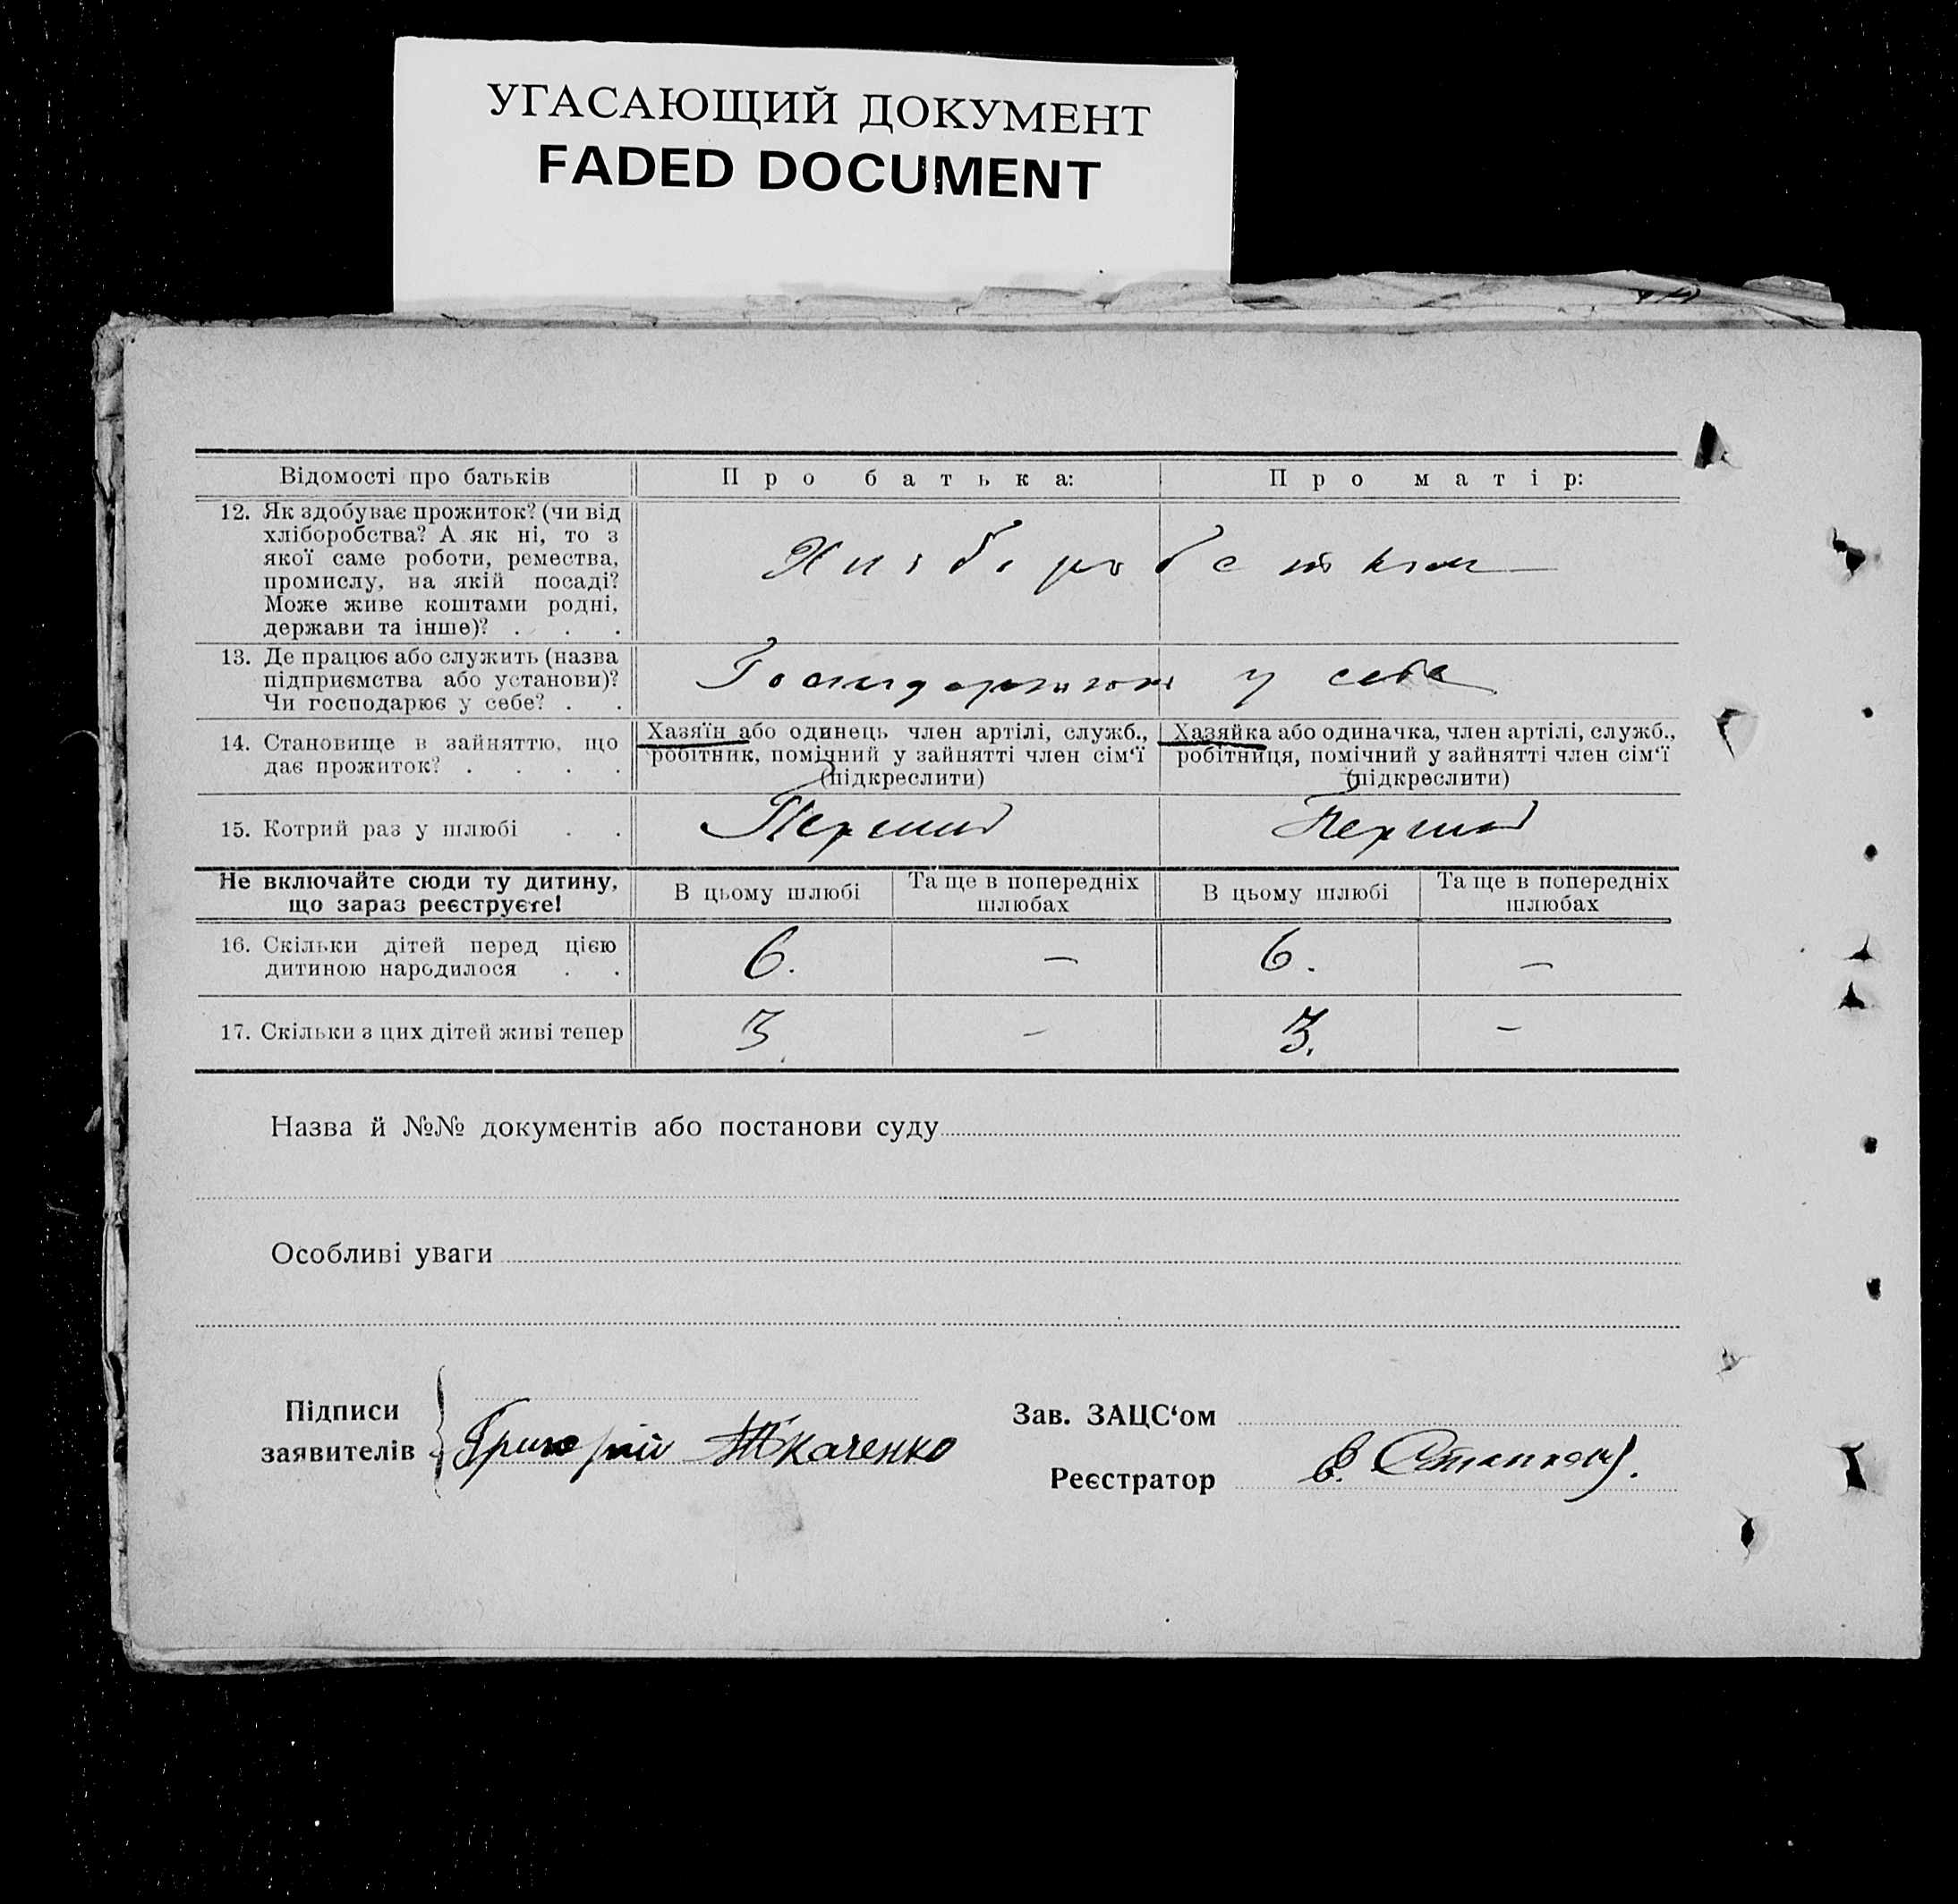 УГАСАЮЩИЙ ДОКУМЕНТ
FADED DOCUMENT
Відомості про батьків Про батька: Про матір:
12. Як здобуває прожиток? (чи від
хліборобства? А як ні, то з
якої саме роботи, ремества,
промислу, на якій посаді?
Може живе коштами родні,
держави та інше)? . . .
Хліборобством
13. Де працює або служить (назва
підприємства або установи)?
Чи господарює у себе? . .
Господарюють у себе
14. Становище в зайняттю, що
дає прожиток? . . . .
Хазяїн або одинець член артілі, служб.,
робітник, помічний у зайнятті член сім‘ї
(підкреслити)
Хазяйка або одиначка, член артілі, служб.,
робітниця, помічний у зайнятті член сім‘ї
(підкреслити)
15. Котрий раз у шлюбі . . Перший Перший
Не включайте сюди ту дитину,
що зараз реєструєте!
В цьому шлюбі
Та ще в попередніх
шлюбах
В цьому шлюбі
Та ще в попередніх
шлюбах
16. Скільки дітей перед цією
дитиною народилося . .
6. — 6. —
17. Скільки з цих дітей живі тепер 3. — 3. —
Назва й №№ документів або постанови суду
Особливі уваги
Підписи
заявителів
Григорій Ткаченко
Зав. ЗАЦС‘ом
Реєстратор В.